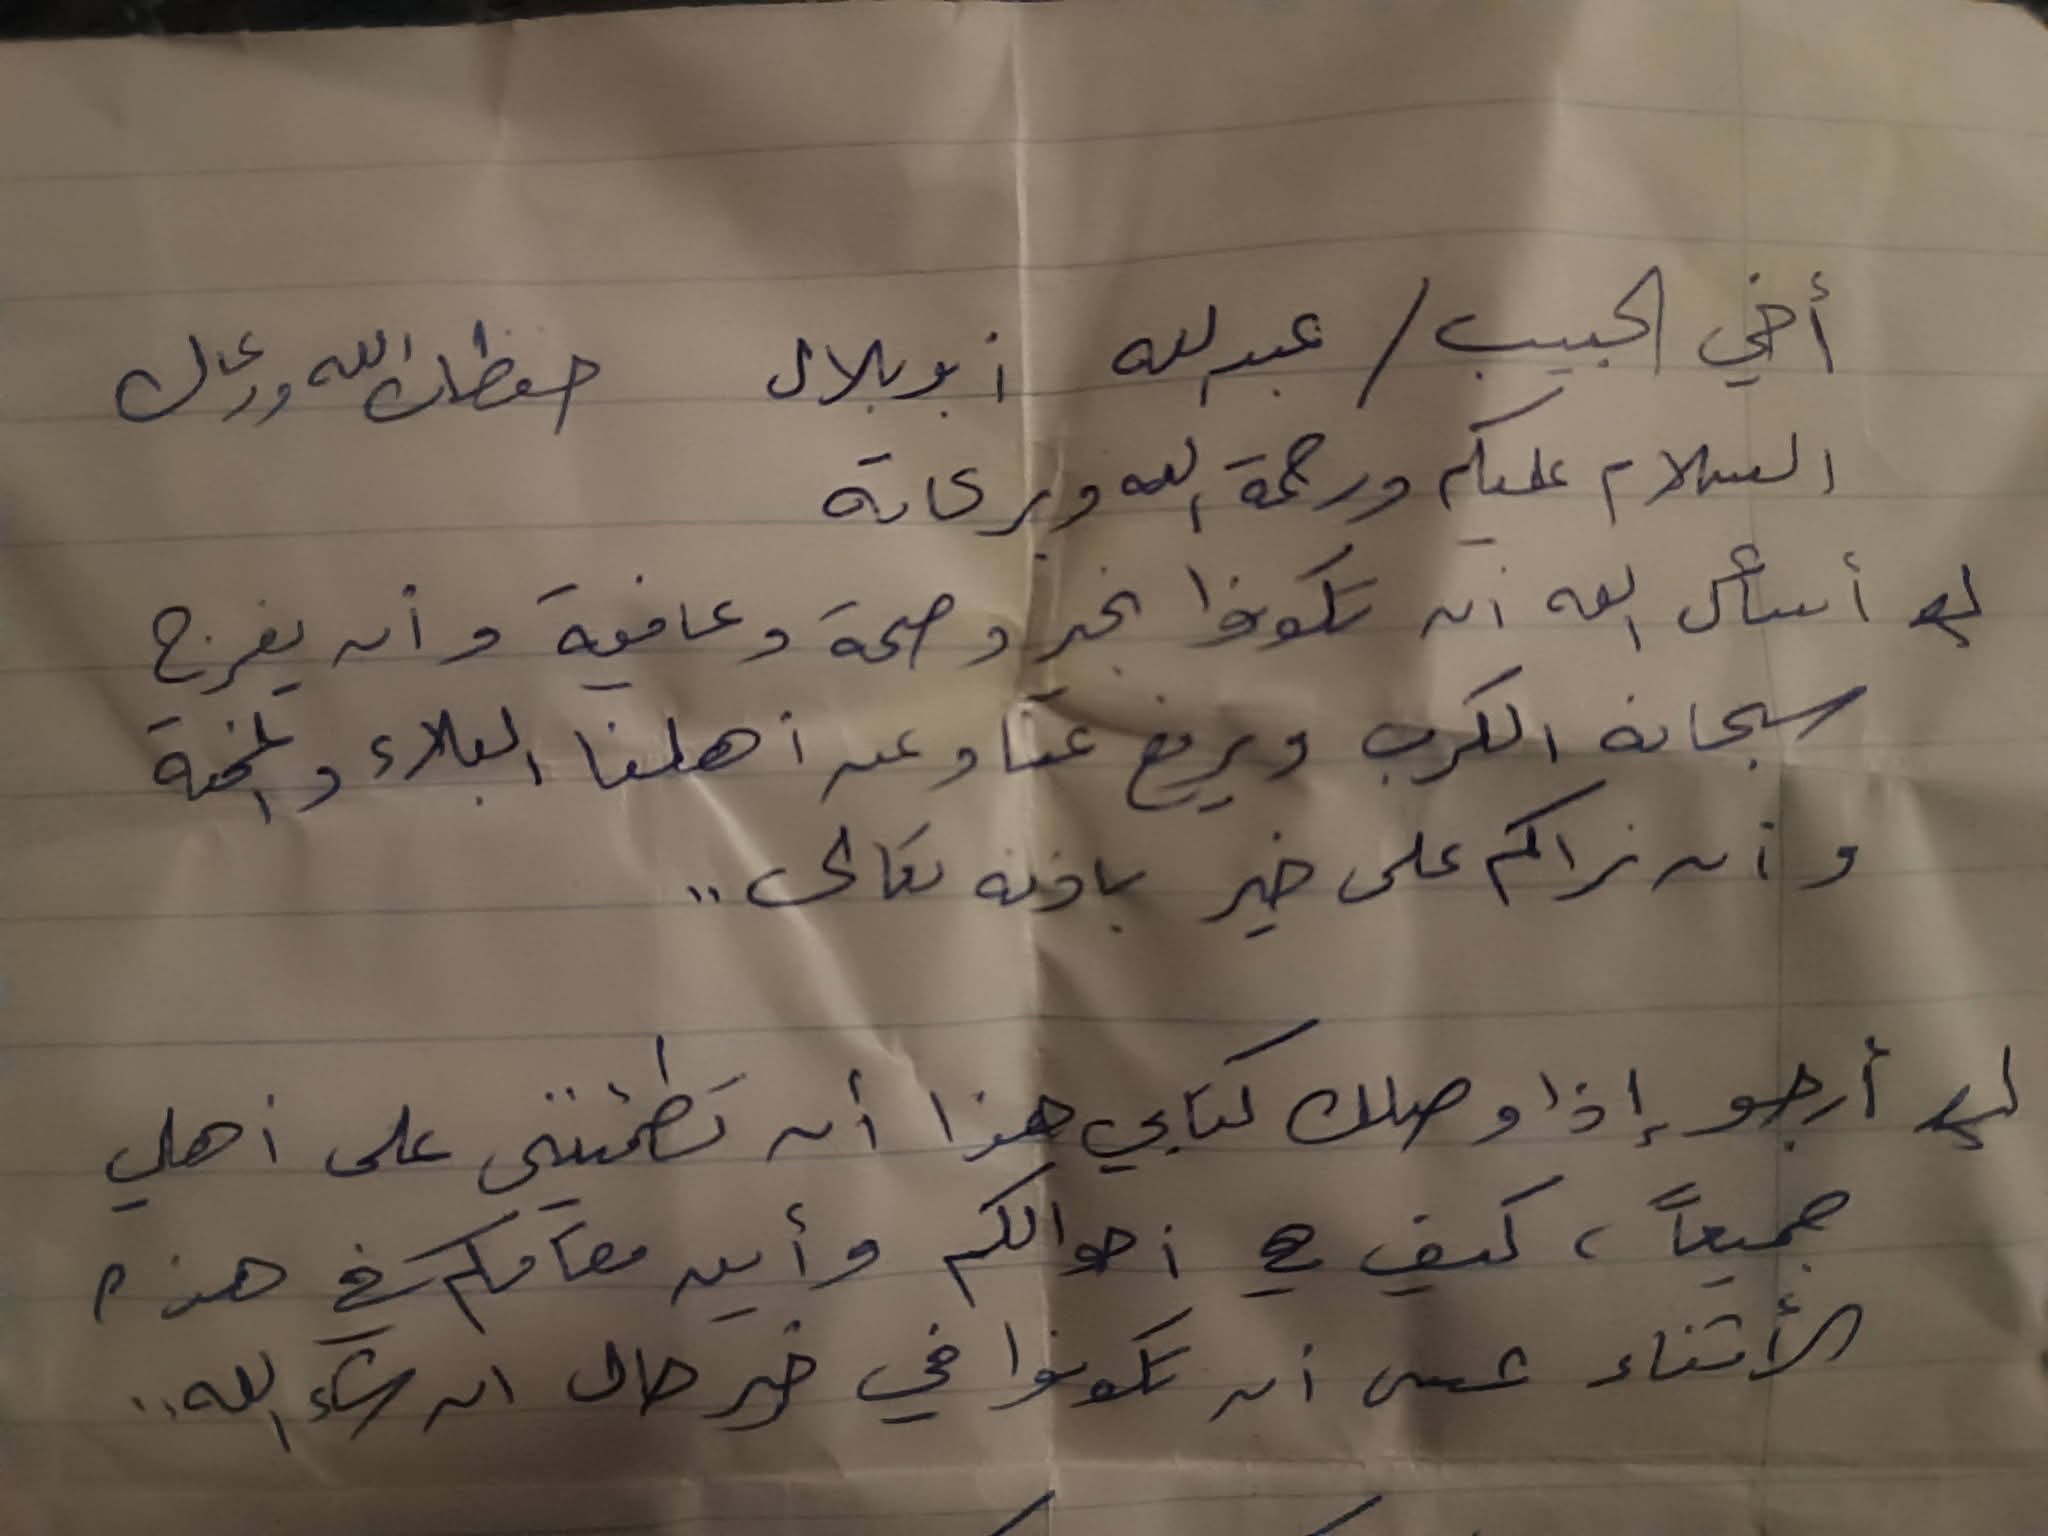 أخي الحبيب / عبدالله أبو بلال حفظك الله ورعاك
السلام عليكم ورحمة الله وبركاتة
أسأل الله أن تكونوا بخير وصحة وعافية وأن يفرج
سبحانه الكرب ويرفع عنا وعن أهلنا البلاء والمحنة
وأن نراكم على خير بإذنه تعالى ..
أرجو إذا وصلك كتابي هذا أن تطمئنني على أهلي
جميعاً، كيف هي أحوالكم وأين مقامكم في هذه
الأثناء عسى أن تكونوا في خير حال ان شاء الله ..